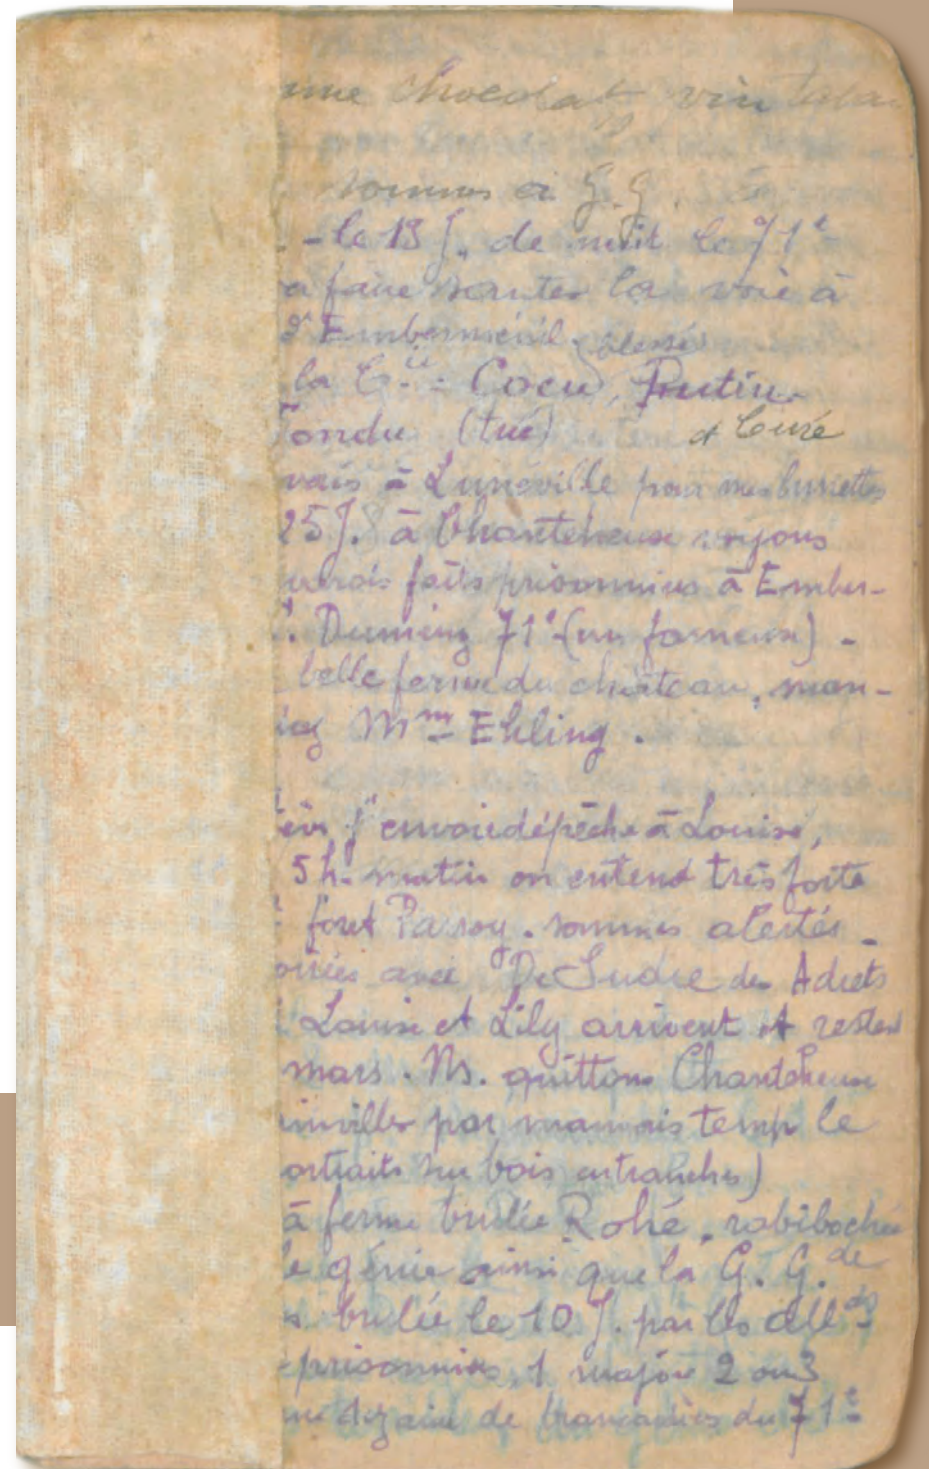 chocolat vin
sommes ci G. G.
- le 13 J. de nuit le 71e
a faire sauter la voie à
d'Emberménil. blessés
la Cie = Cocu,
Tondu (tué) et Curé
vais à Lunéville pour mes lunettes
25 J. à Chanteheux voyons
faits prisonniers à Ember-
71e (un fameux) -
belle ferme du château, man-
Mme Ehling.
j'envoie dépêche à Louise,
5 h. matin on entend très forte
fort Parroy. sommes alertés -
avec De Sudre des Adrets
Louise et Lily arrivent et restent
mars. Ns. quittons Chanteheux
par mauvais temps le
sur bois en tranches)
à ferme brulée Rohé, rabibochée
le génie ainsi que la G. G. de
brulée le 10 J. par les alleds
prisonniers, 1 major 2 ou 3
dizaine de brancardiers du 71e